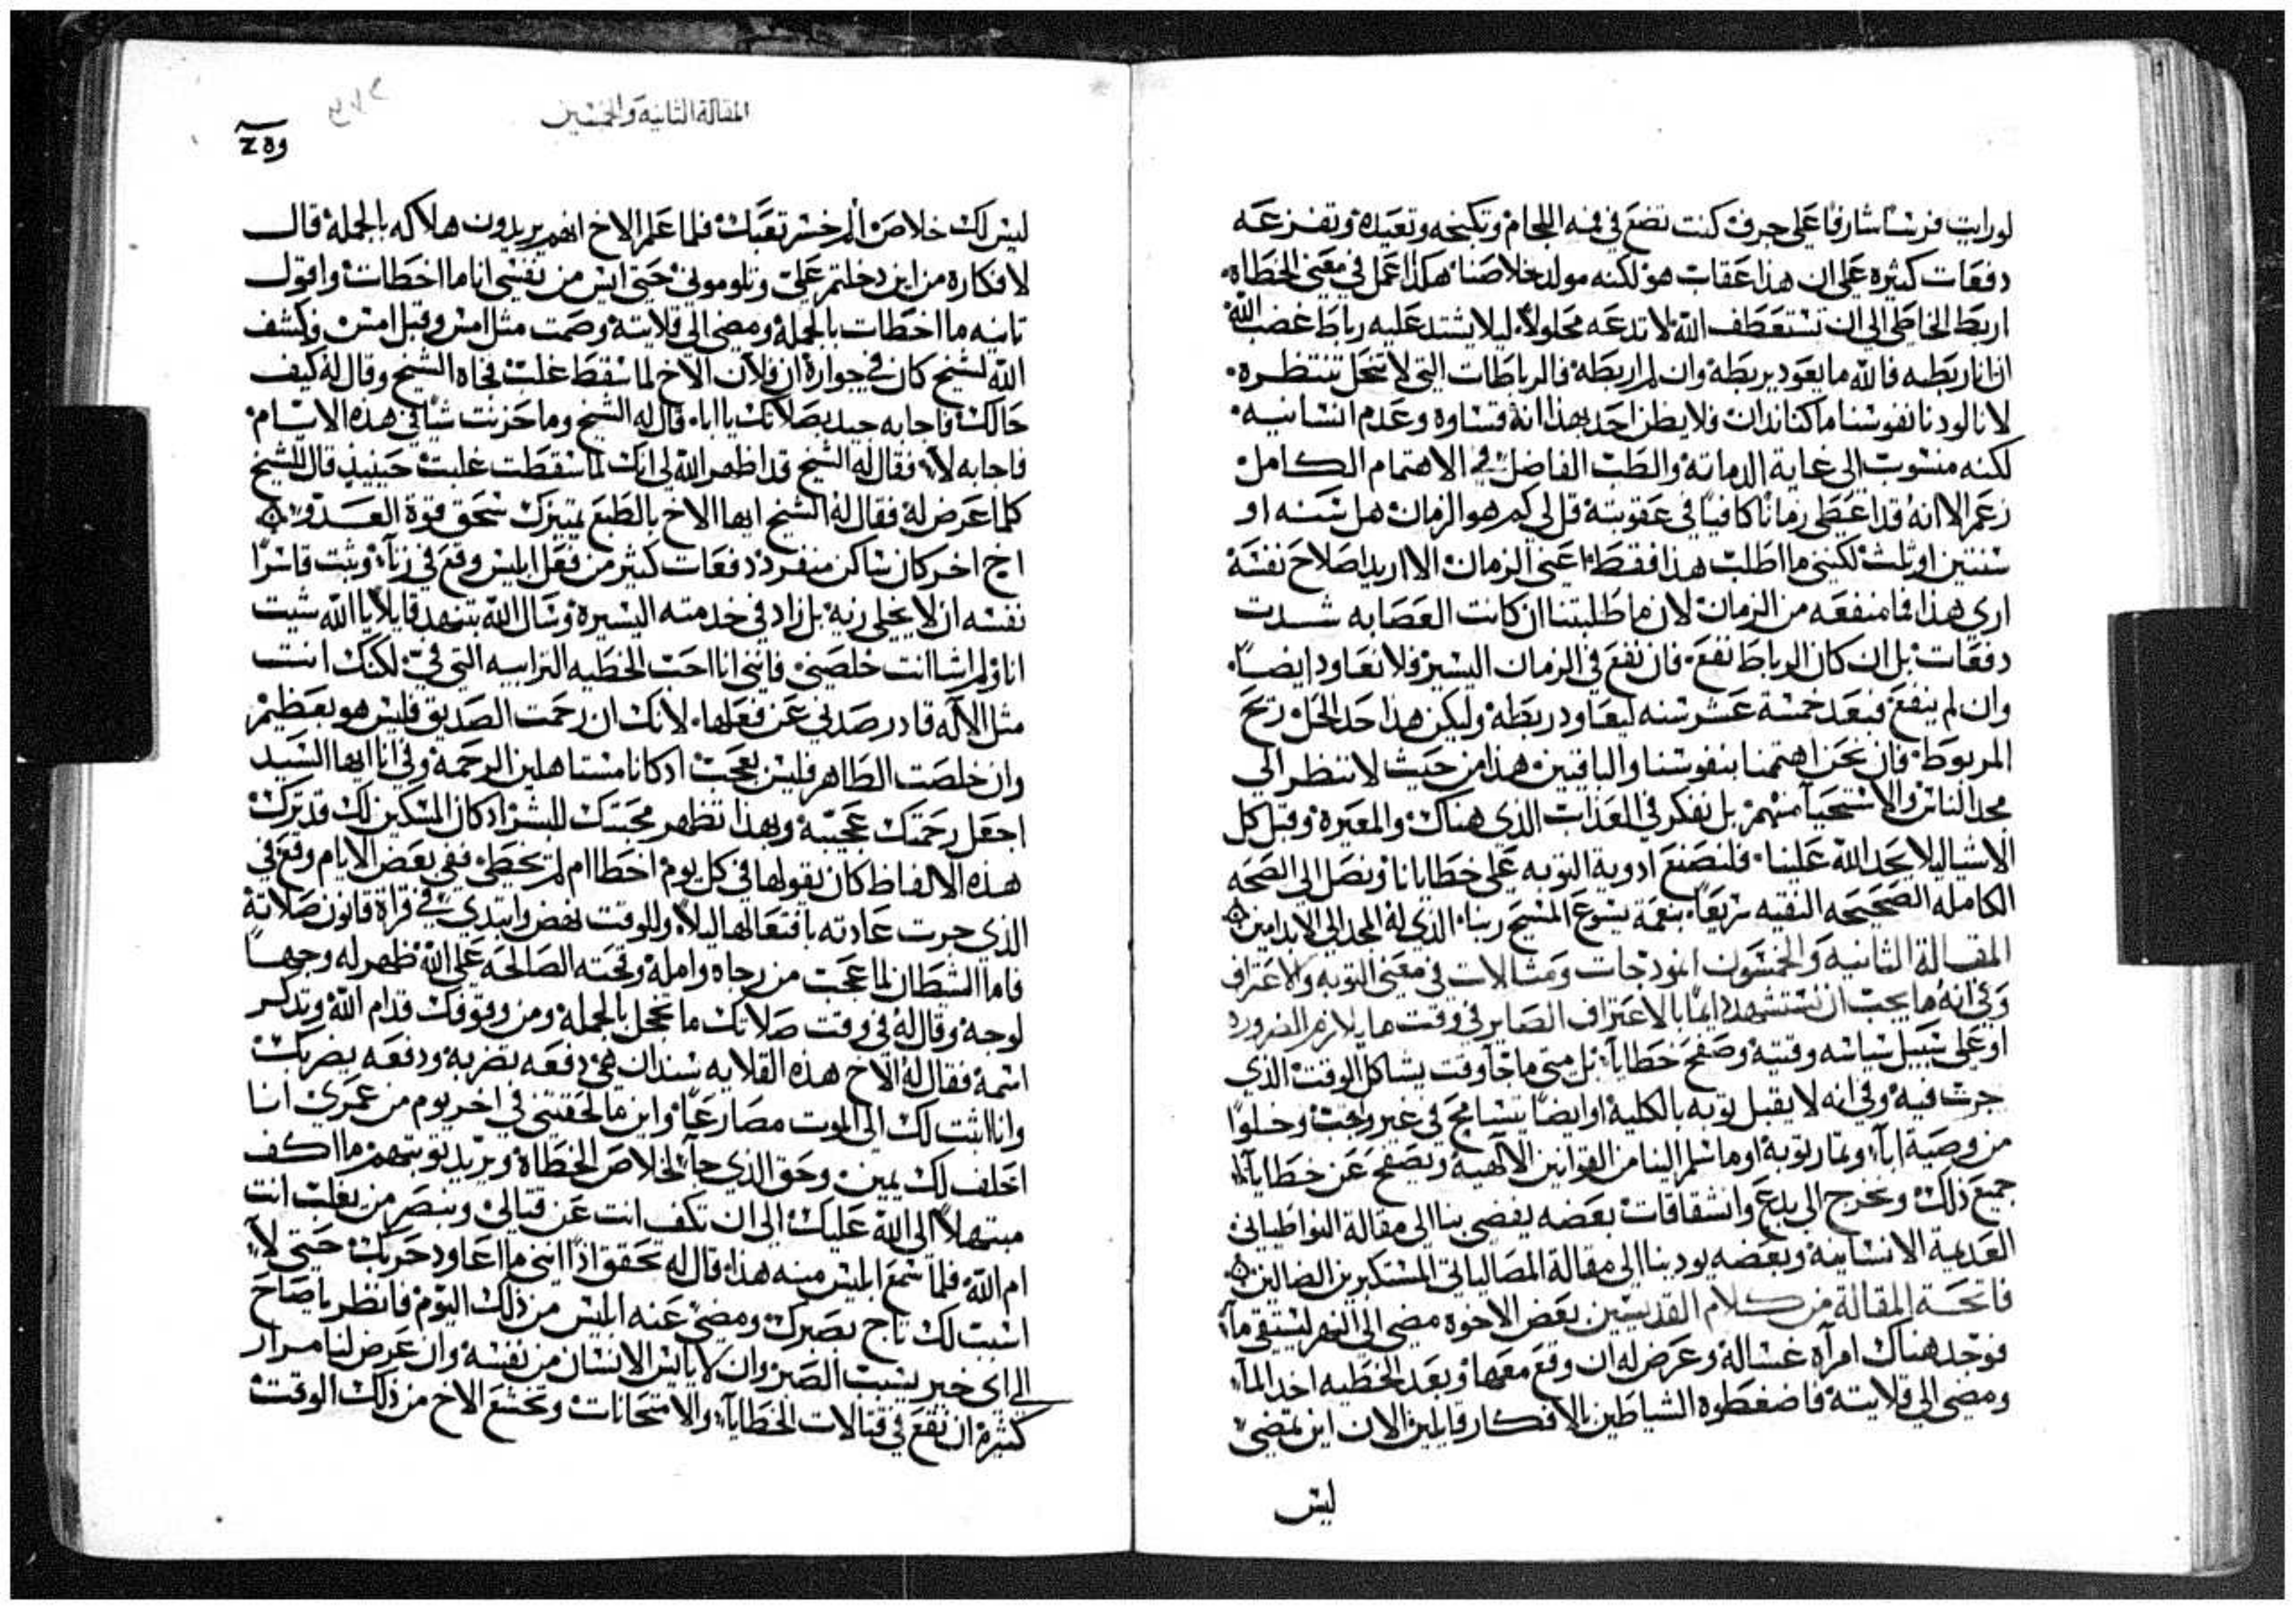 لورايت فرسًا شارفًا على جرف كنت تضع في فمه اللجام وتكبحه وتعيده وتفزعه
دفعات كثيره على ان هذا عقاب هو لكنه مولد خلاصنا هكذا اعمل في معنى الخطاه
اربط الخاطي الى ان تستعطف الله لا تدعه محلولاً ليلا يشتد عليه رباط غضب الله
ان انا ربطته فالله ما يعود يربطه وان لم اربطه فالرباطات التي لا تنحل تنتظره
لانا لو دنا نفوسنا ما كنا ندان فلا يظن احد بهذا انه قساوه وعدم انسانيه
لكنه منسوب الى غاية الدماثه والطب الفاضل في الاهتمام الكامل
زعم الا انه قد اعطى زمانًا كافيًا في عقوبته قل لي كم هو الزمان هل سنه او
سنتين او ثلث لكنني ما اطلب هذا فقط اعني الزمان الا اريد اصلاح نفسه
ارى هذا فما منفعه من الزمان لان ما طلبتنا ان كانت العصابه شدت
دفعات بل ان كان الرباط نفع فان نفع في الزمان اليسير فلا نعاود ايضًا
وان لم ينفع فبعد خمسة عشر سنه ليعاود ربطه وليكن هذا حد الحل ربح
المربوط فان نحن اهتممنا بنفوسنا والباقيين هذا من حيث لا ننتظر الى
مجد الناس والاستحيا منهم بل نفكر في العذاب الذي هناك والمعيره وقبل كل
الاشيا ليلا يحد الله علينا فلنصنع ادوية التوبه على خطايانا ونصل الى الصحه
الكامله الصحيحه النقيه سريعًا بنعمة يسوع المسيح ربنا الذي له المجد الى الابد امين
المقالة الثانيه والخمسون انموذجات ومثالات في معنى التوبه والاعتراف
وفي انه ما يجب ان نستشهد دايمًا بالاعتراف الصاير في وقت ما يلازم الضروره
او على سبيل سياسه وقتيه وصفح خطايا بل متى ما جا وقت يشاكل الوقت الذي
جرت فيه وفي انه لا يقبل توبه بالكليه او ايضًا يتسامح في غير واجب وخلوًا
من وصية ابا وثمار توبة او ما سلم الينا من القوانين الالهيه ويصفح عن خطايا
جميع ذلك ونخرج الى بدع وانشقاقات بعضه يفضي بنا الى مقالة النواطياني
العديمة الانسانيه وبعضه يودينا الى مقالة المصاليانى المستكبرين الضالين
فاتحة المقالة من كلام القديسين بعض الاخوه مضى الى النهر ليستقي ماً
فوجد هناك امرآه غساله وعرض له ان وقع معها وبعد الخطيه اخذ المآ
ومضى الى قلايته فاضغطوه الشياطين بالافكار قايلين الان اين تمضي
ليس
المقالة الثانيه والخمسين
ليس لك خلاص فلما علم الاخ انهم يريدون هلاكه بالجملة قال
لافكاره من اين دخلتم علي وتلوموني حتى ايس من نفسي انا ما اخطات واقول
تانيه ما اخطات بالجملة ومضى الى قلايته وصمت مثل امس وقبل امس وكشف
الله لشيخ كان في جواره ان فلان الاخ لما سقط غلب فجاه الشيخ وقال له كيف
حالك فاجابه جيد بصلاتك يا ابا قال له الشيخ وما حزنت شيًا في هذه الايام
فاجابه لا فقال له الشيخ قد اظهر الله لي انك لما سقطت غلبت حينيذ قال للشيخ
كلما عرض له فقال له الشيخ ايها الاخ بالطبع تميزك سحق قوة العدو
اخ اخر كان ساكن منفرد دفعات كثير من فعل ابليس وقع في زنآ وثبت قاسرًا
نفسه ان لا يخلي زيه بل زاد في خدمته اليسيره وسال الله بتنهد قايلا يا الله شيت
انا او لم اشا انت خلصني فانني انا احب الخطيه الترابيه التي في لكنك انت
مثل الاله قادر صدني عن فعلها لانك ان رحمت الصديق فليس هو بعظيم
وان خلصت الطاهر فليس بعجب اذ كانا مستاهلين الرحمه وفي انا ايها السيد
اجعل رحمتك عجيبة وبهذا تظهر محبتك للبشر اذ كان المسكين لك قد ترك
هذه الالفاظ كان يقولها في كل يوم اخطا ام لم يخطئ ففي بعض الايام وقع في
الذي جرت عادته بافتعالها ليلاً وللوقت نهض وابتدى في قراة قانون صلاته
فاما الشيطان لما عجب من رجاه وامله وقحته الصالحه على الله ظهر له وجهًا
لوجه وقال له في وقت صلاتك ما تخجل بالجملة ومن وقوفك قدام الله وتذكر
اسمه فقال له الاخ هذه القلايه سندان هي دفعه تضربه ودفعه يضربك
وانا اثبت لك الى الموت مصارعًا واين ما لحقتني في اخر يوم من عمري انا
احلف لك يمين وحق الذي جآ لخلاص الخطاة ويريد توبتهم ما اكف
مبتهلاً الى الله عليك الى ان تكف انت عن قتالي وننصر من يغلب انت
ام الله فلما سمع ابليس منه هذا قال له تحقق اذًا انني ما اعاود حربك حتى لا
اسبب لك تاج بصبرك ومضى عنه ابليس من ذلك اليوم فانظر يا صاح
الى اي خير يسبب الصبر وان لا يايس الانسان من نفسه وان عرض لنا مرار
كثيرة ان نقع في قتالات الخطايآ والامتحانات وتخشع الاخ من ذلك الوقت